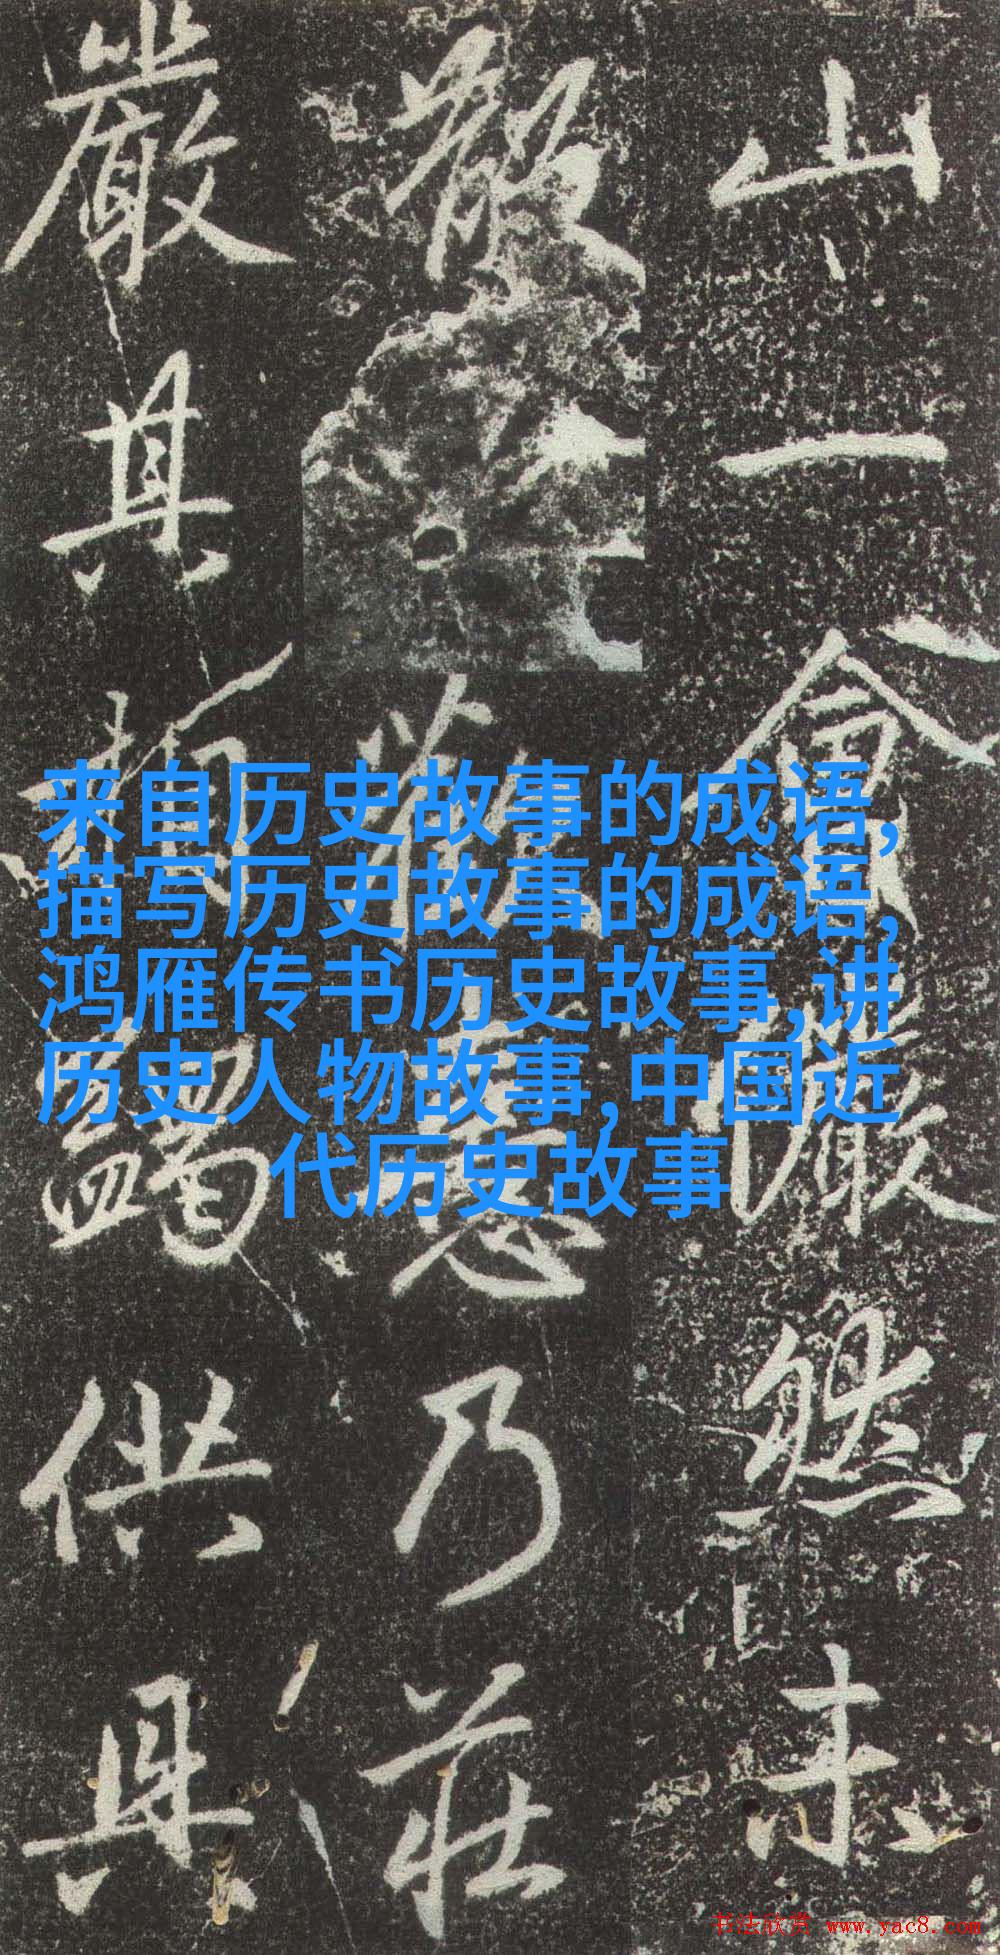 山一會儼然未
散
乃莊
嚴具
供具
来自历史故事的成语,
描写历史故事的成语,
鸿雁传书历史故事,讲
历史人物故事,中国近
代历史故事
书法欣赏 www.yac8.com